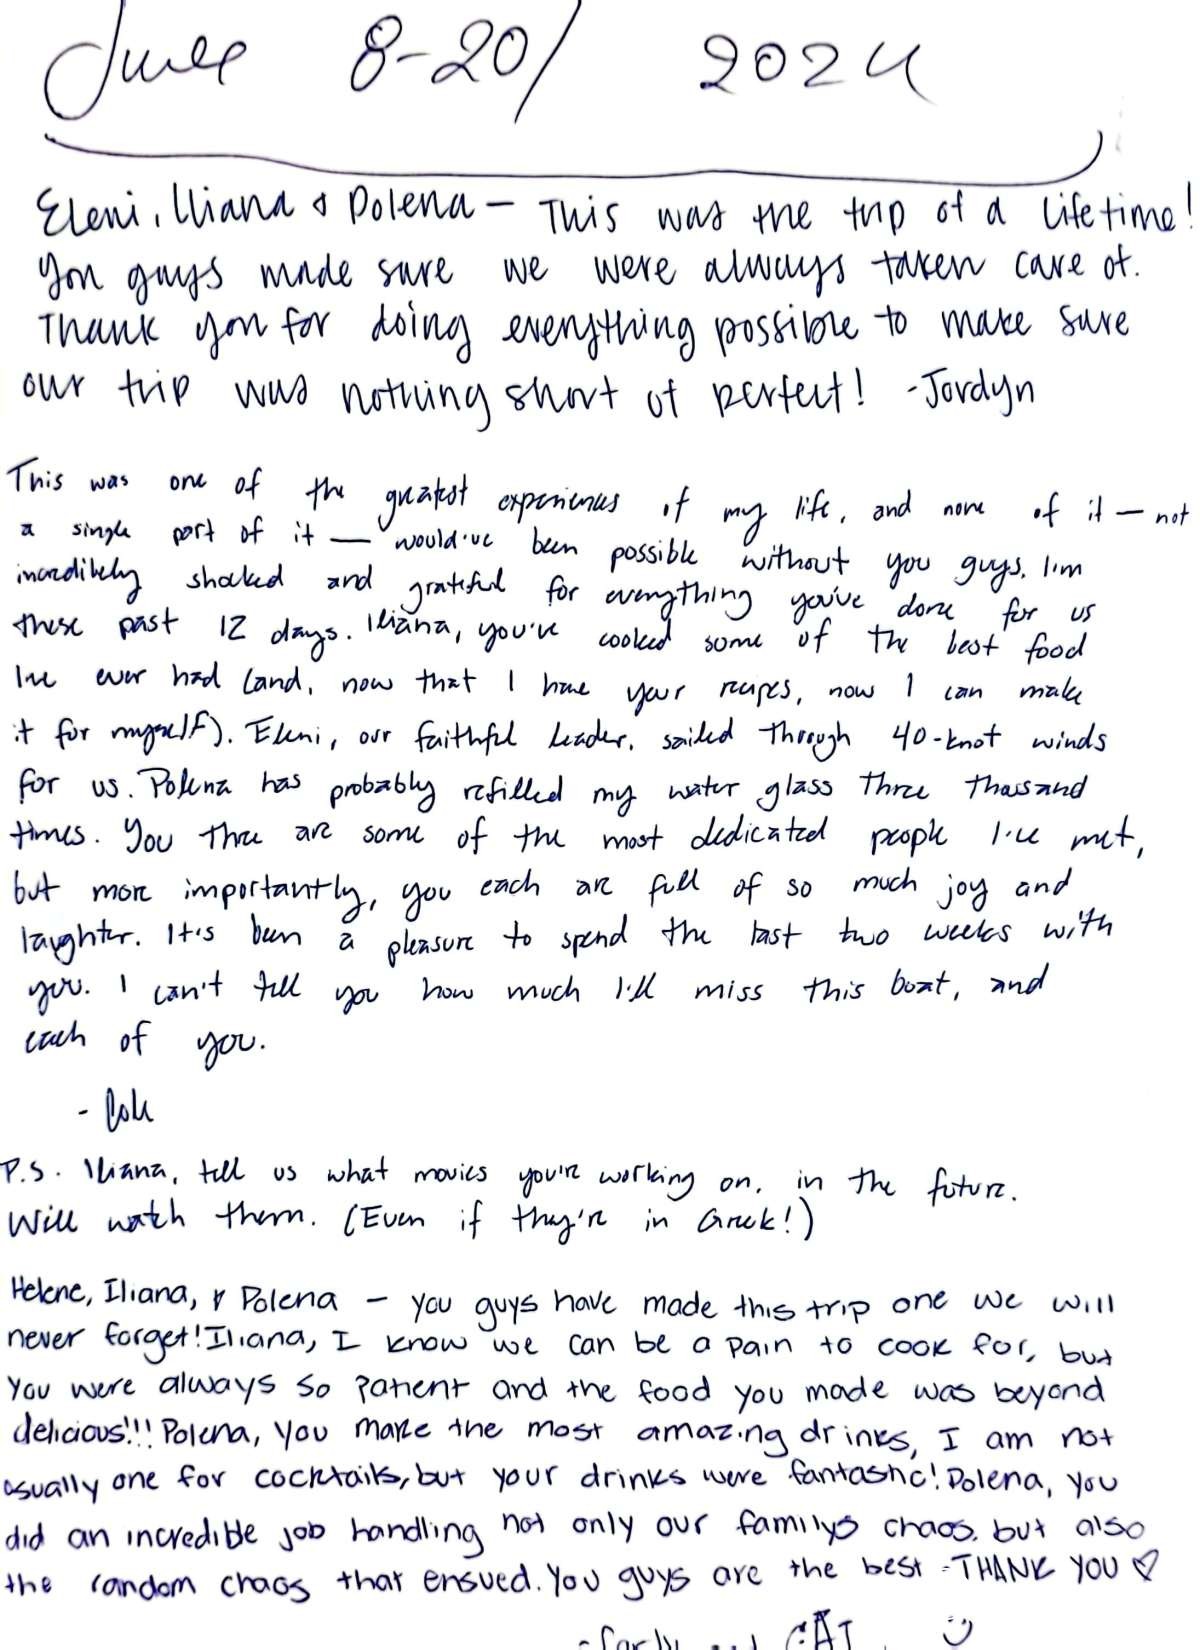 June 8-20/ 2024
Eleni, Iliana & Polena - This was the trip of a lifetime!
You guys made sure we were always taken care of.
Thank you for doing everything possible to make sure
our trip was nothing short of perfect! -Jordyn
This was one of the greatest experiences of my life, and none of it — not
a single part of it — would've been possible without you guys. I'm
incredibely shocked and grateful for everything you've done for us
these past 12 days. Iliana, you've cooked some of the best food
I've ever had (and, now that I have your recipes, now I can make
it for myself). Eleni, our faithful leader, sailed through 40-knot winds
for us. Polena has probably refilled my water glass three thousand
times. You three are some of the most dedicated people I've met,
but more importantly, you each are full of so much joy and
laughter. It's been a pleasure to spend the last two weeks with
you. I can't tell you how much I'll miss this boat, and
each of you.
- Cole
P.S. Iliana, tell us what movies you're working on, in the future.
Will watch them. (Even if they're in Greek!)
Helene, Iliana, & Polena - you guys have made this trip one we will
never forget! Iliana, I know we can be a pain to cook for, but
you were always so patient and the food you made was beyond
delicious!!! Polena, you make the most amazing drinks, I am not
usually one for cocktails, but your drinks were fantastic! Polena, you
did an incredible job handling not only our familys chaos, but also
the random chaos that ensued. You guys are the best - THANK YOU ♡
CAT :)